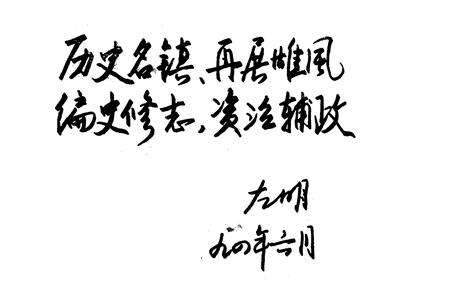 历史名镇、再展雄风
编史修志,资治辅政
左明
九四年六月